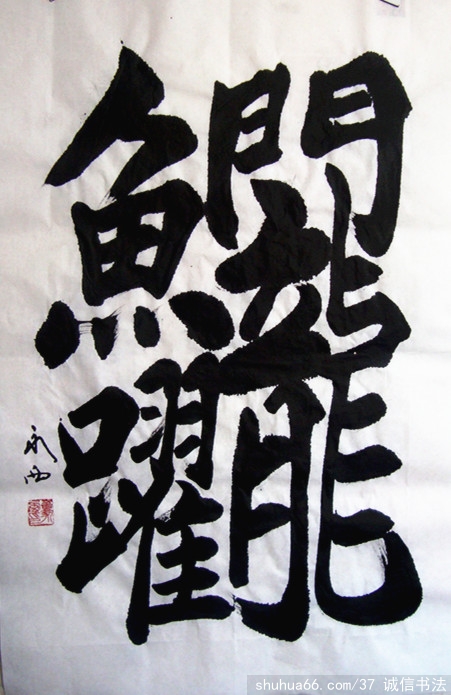 魚躍龍門
shuhua66.com/37 诚信书法